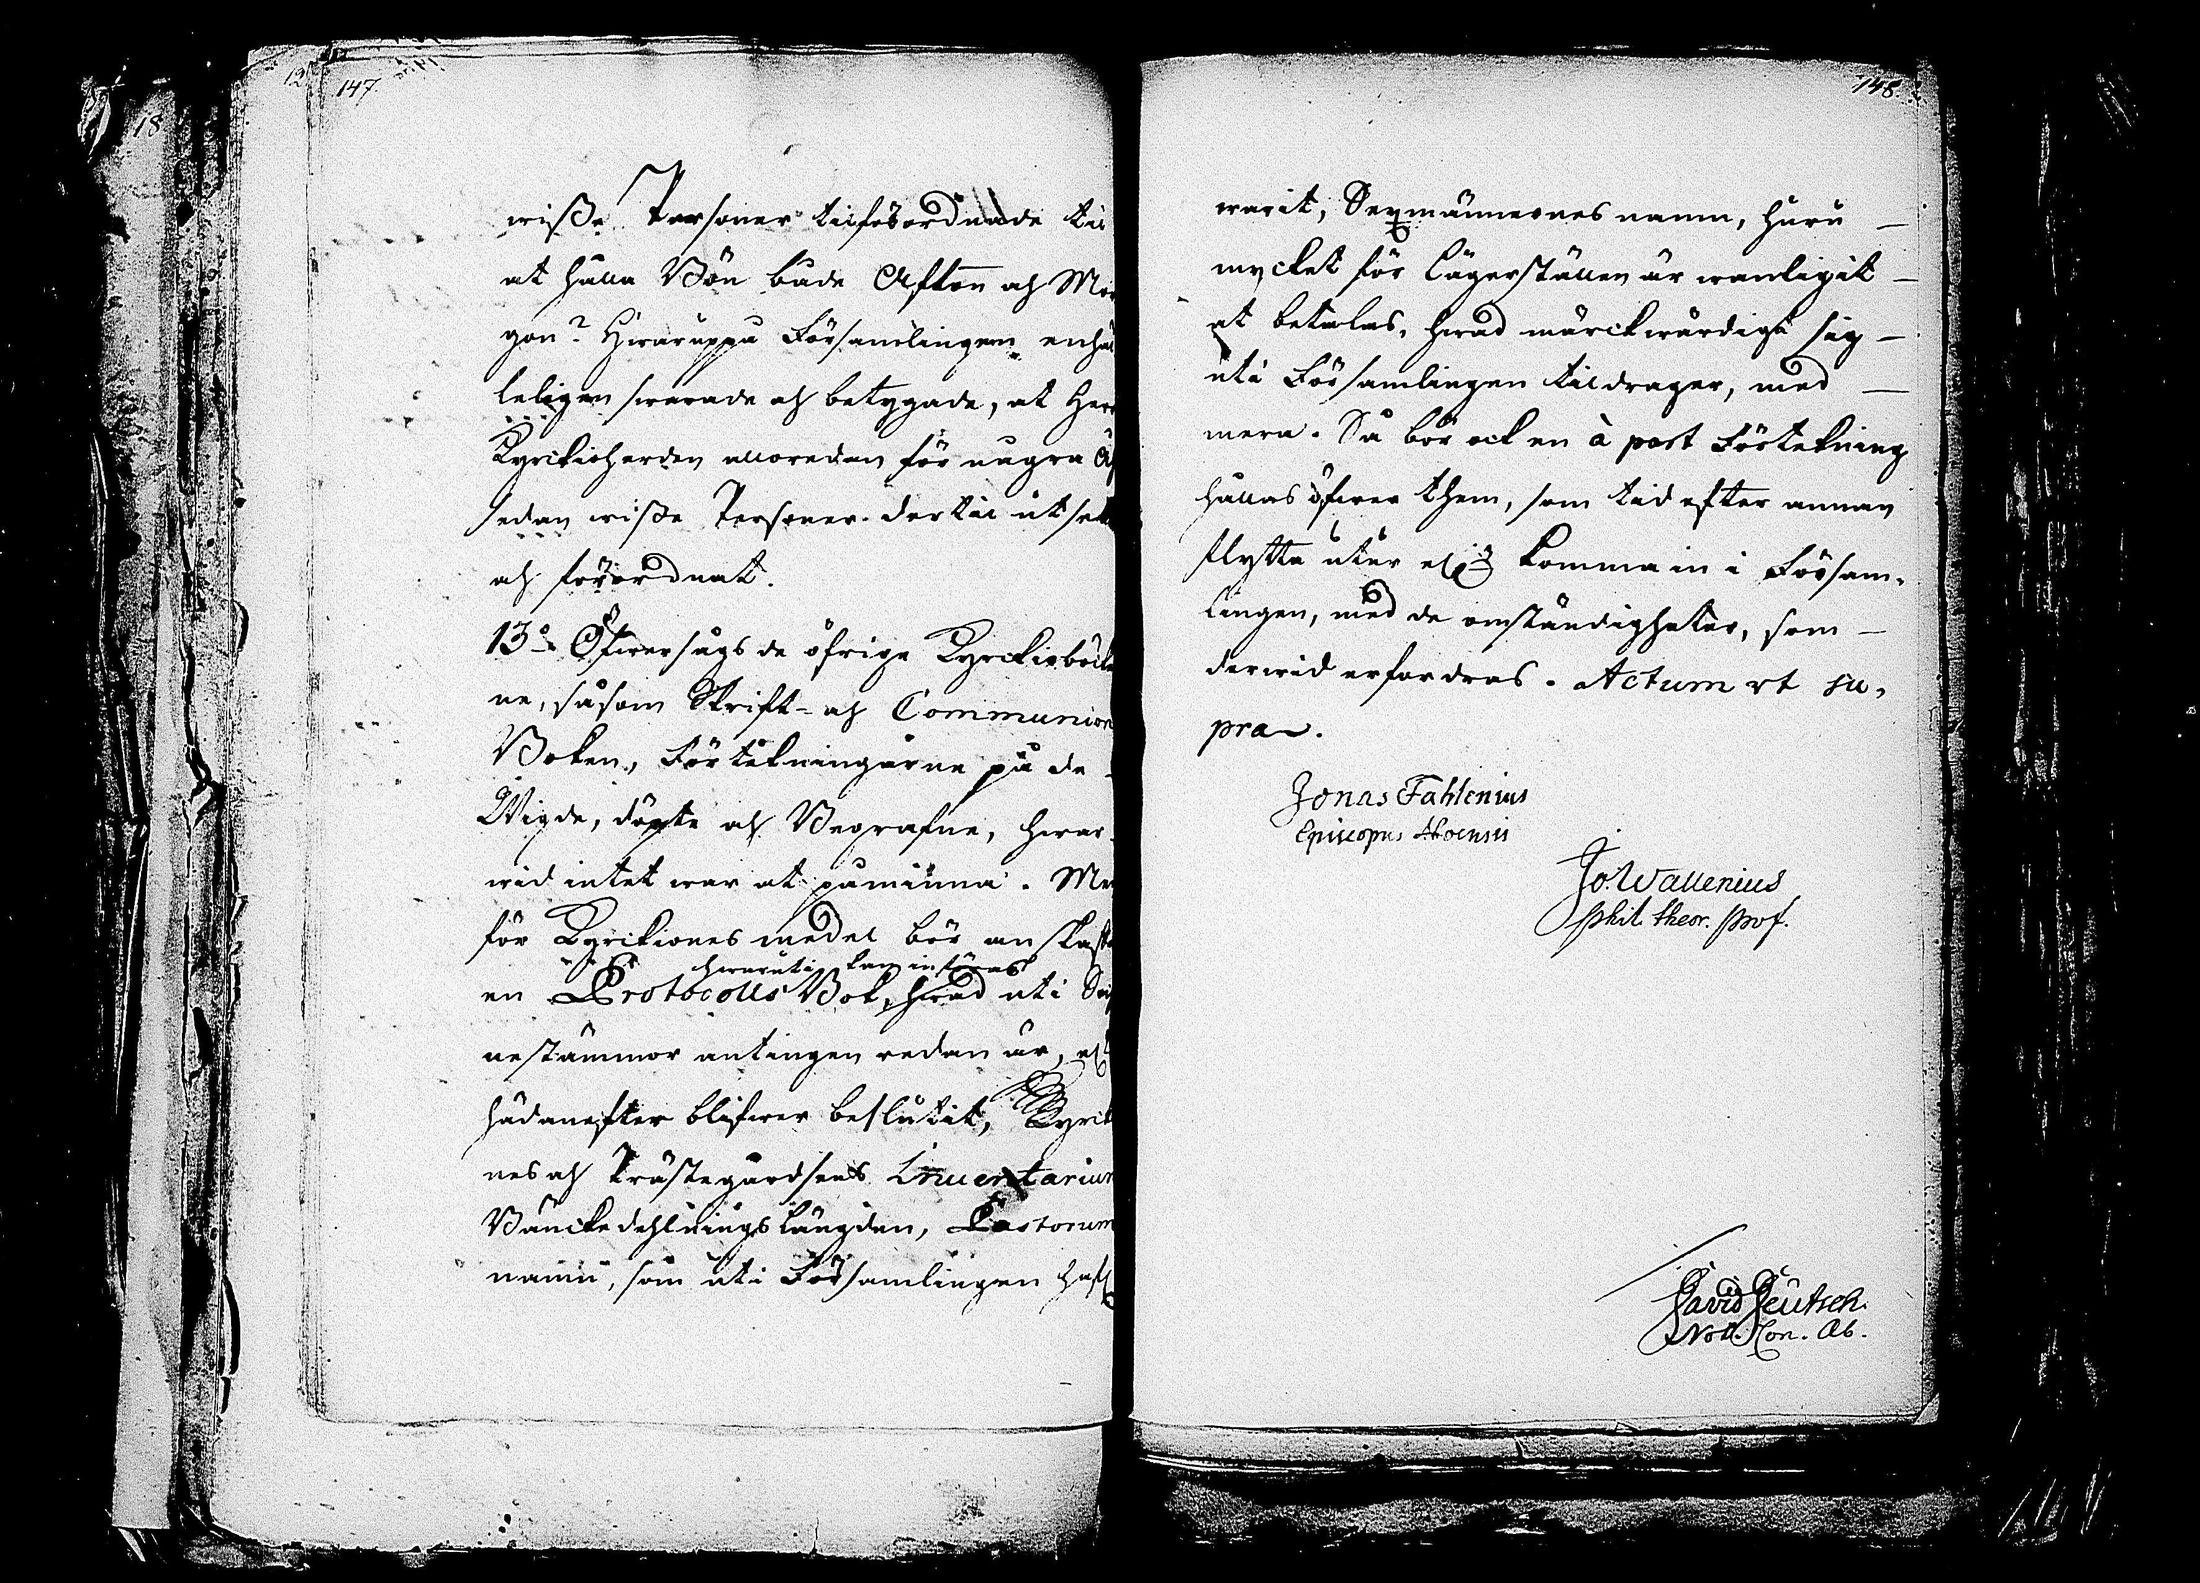 147.
18
wisse Personer tilförordnade til
at hålla Bön både Afton och Mor
gon? Hwaruppå Församlingen enhäl
leligen swarade och betygade, at Herr
Kyrkioherden alloredan för några Åhr
sedan wisse Personer dertil utsett
och förordnat.
13:o Öfwersågs de öfrige Kyrckioböcker
ne, såsom Skrift- och Communion
Boken, Förtekningarne på de
Wigde, döpte och Begrafne, hwar-
wid intet war at påminna. Men
för Kyrkiones medel bör anskaffas
hwaruti kan införas
en Protocolls Bok, hwad uti Sock
nestämmor antingen redan är, eller
hädanefter blifwer beslutit, Kyrkio
nes och Prästegårdsens Inventarium
Bänckedehlningslängden, Pastorum
namn, som uti Församlingen haf
148.
warit, Sexmännernes namn, huru
mycket för lägerställen är wanligit
at betalas, hwad märckwärdigt sig
uti Församlingen tildrager, med
mera. Så bör ock en à part Förtekning
hållas öfwer them, som tid efter annan
flytta utur eller komma in i Försam-
lingen, med de omständigheter, som
derwid erfordras. Actum ut su-
pra.
Jonas Fahlenius
Episcopus Aboensis
Jo. Wallenius
phil. theor. prof.
David Deutsch.
Not. Con. Ab.